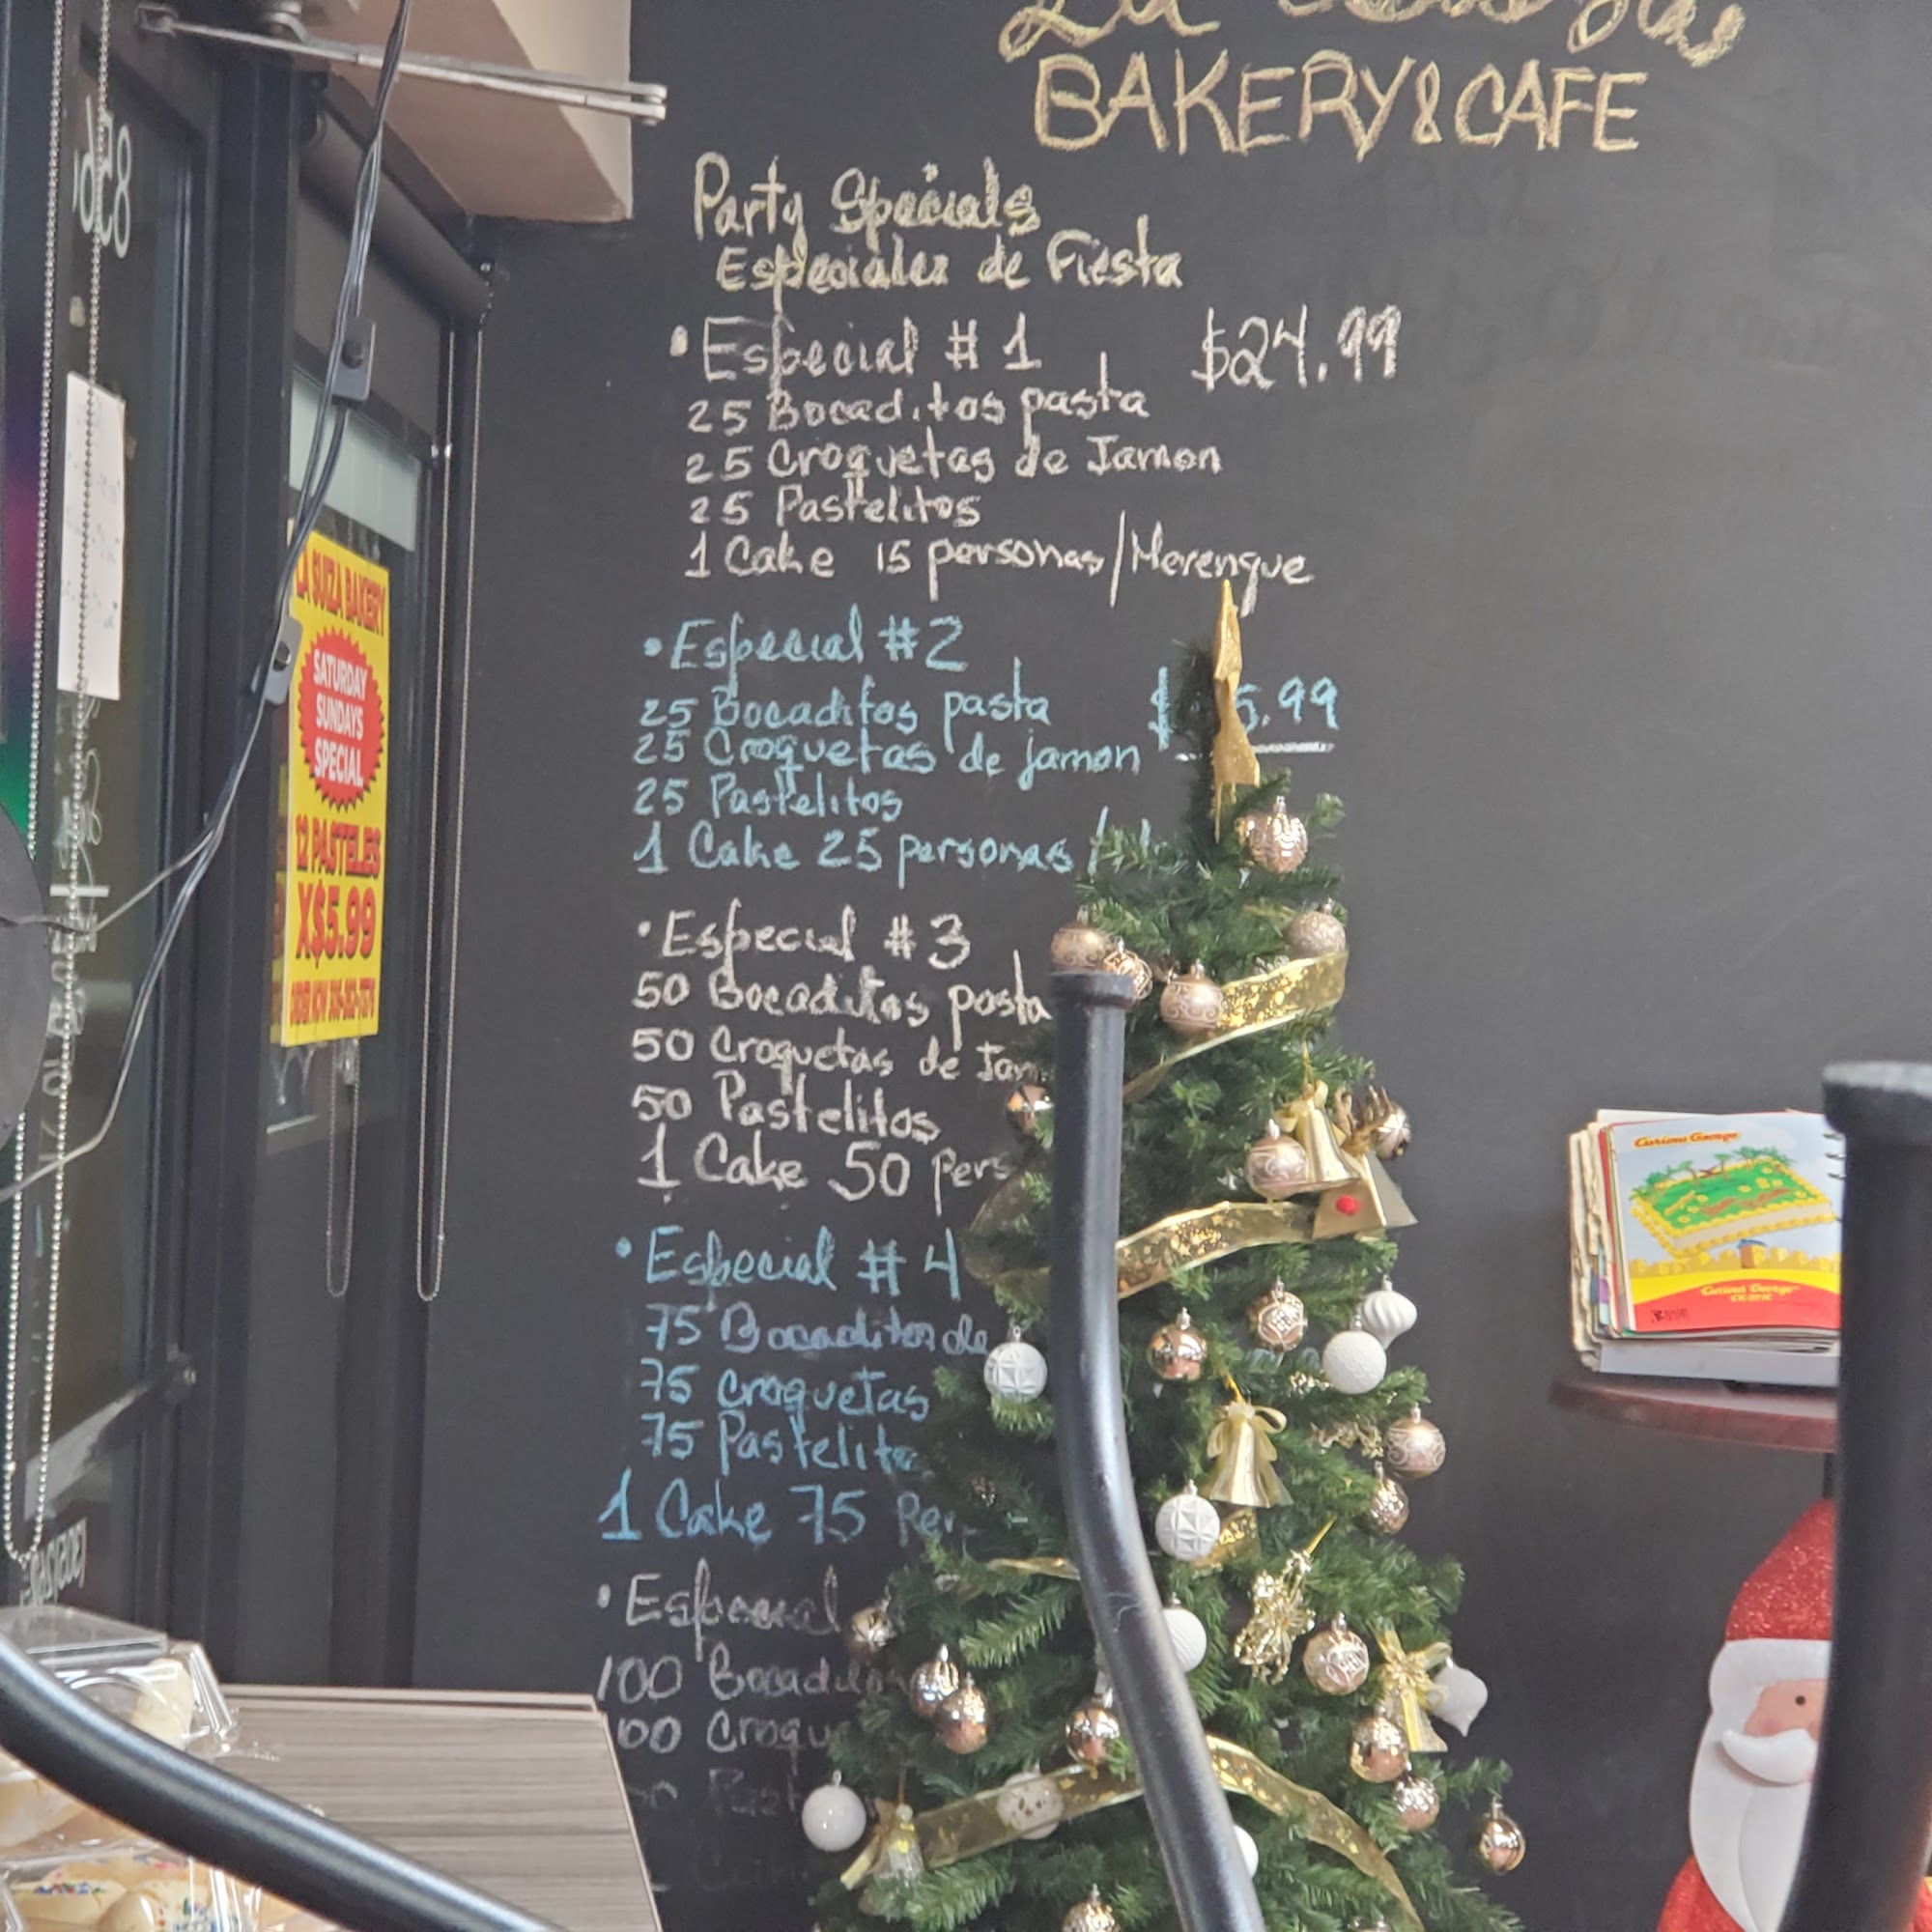 BAKERY & CAFE
Party Specials
Especiales de Fiesta
• Especial # 1 $24.99
25 Bocaditos pasta
25 Croquetas de Jamon
25 Pastelitos
1 Cake 15 personas/Merengue
• Especial #2
25 Bocaditos pasta $ 5.99
25 Croquetas de jamon
25 Pastelitos
1 Cake 25 personas /
• Especial # 3
50 Bocaditos pasta
50 Croquetas de Jam
50 Pastelitos
1 Cake 50 pers
• Especial # 4
75 Bocaditos de
75 croquetas
75 Pastelito
1 Cake 75 Per
• Especial
100 Bocaditos
00 Croque
Past
LA SUIZA BAKERY
SATURDAY
SUNDAYS
SPECIAL
12 PASTELES
X$5.99
Curious George
Curious George